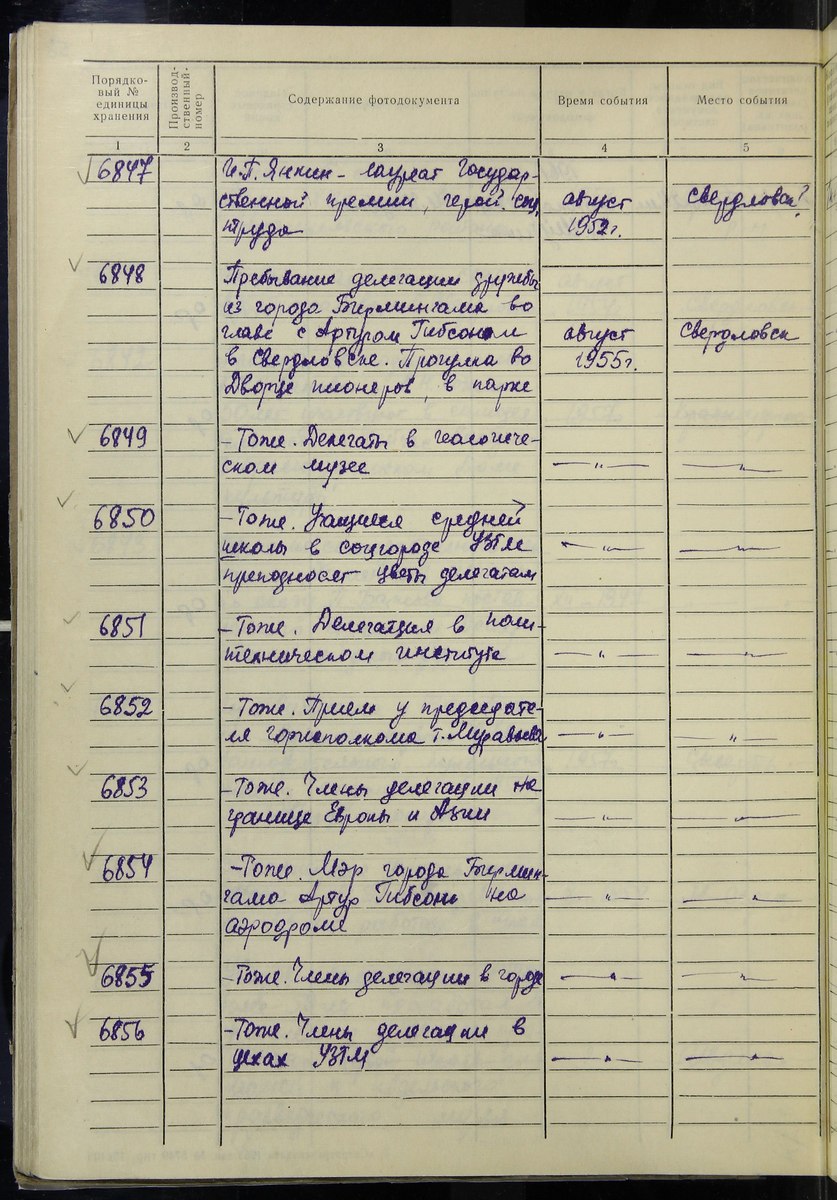 Порядко-
вый №
единицы
хранения
Производ-
ственный
номер
Содержание фотодокумента
Время события
Место события
1 2 3 4 5
6847 И.П. Янкин - лауреат Государ-
ственной премии, герой соц. август Свердловск?
труда 1952г.
6848 Пребывание делегации дружбы
из города Бирмингама во
главе с Артуром Гибсоном август Свердловск
в Свердловске. Прогулка во 1955г.
Дворце пионеров, в парке
6849 - Тоже. Делегаты в геологиче-
ском музее —"— —"—
6850 - Тоже. Учащиеся средней
школы в соцгороде УЗТМ —"— —"—
преподносят цветы делегатам
6851 - Тоже. Делегация в поли-
техническом институте —"— —"—
6852 - Тоже. Прием у председате-
ля горисполкома т. Муравьева —"— —"—
6853 - Тоже. Члены делегации на
границе Европы и Азии —"— —"—
6854 - Тоже. Мэр города Бирмин-
гама Артур Гибсон на —"— —"—
аэродроме
6855 - Тоже. Члены делегации в городе —"— —"—
6856 - Тоже. Члены делегации в
цехах УЗТМ —"— —"—